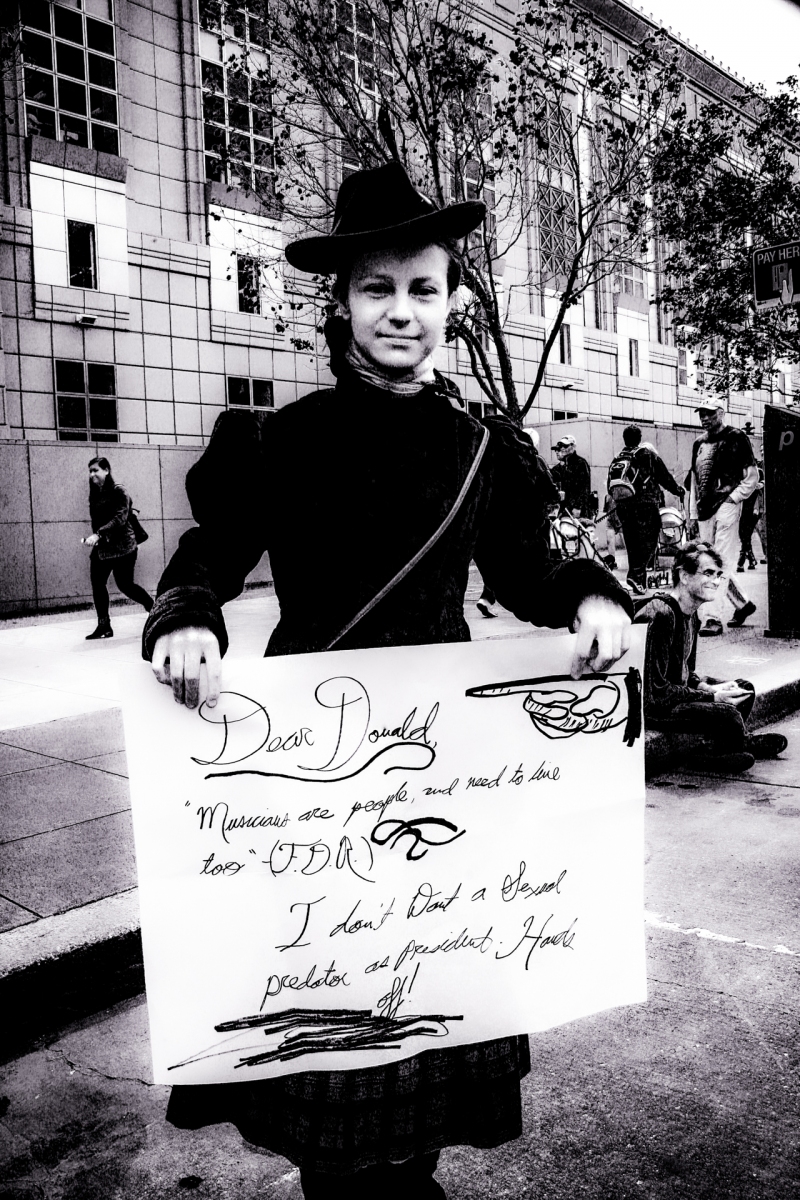 Dear Donald,
"Musicians are people, and need to live
too" - (F.D.R.)
I don't Want a Sexual
predator as president. Hands
off!
PAY HERE
P